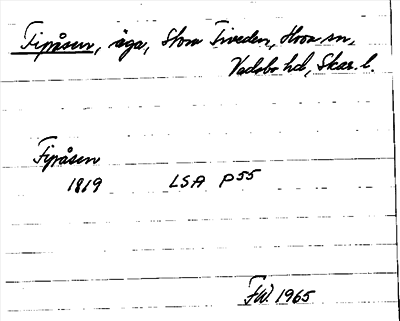 Fipåsen, äga, Stora Tiveden, Hova sn,
Vadsbo hd, Skar. l.
Fipåsen
1819 LSA P55
FW. 1965